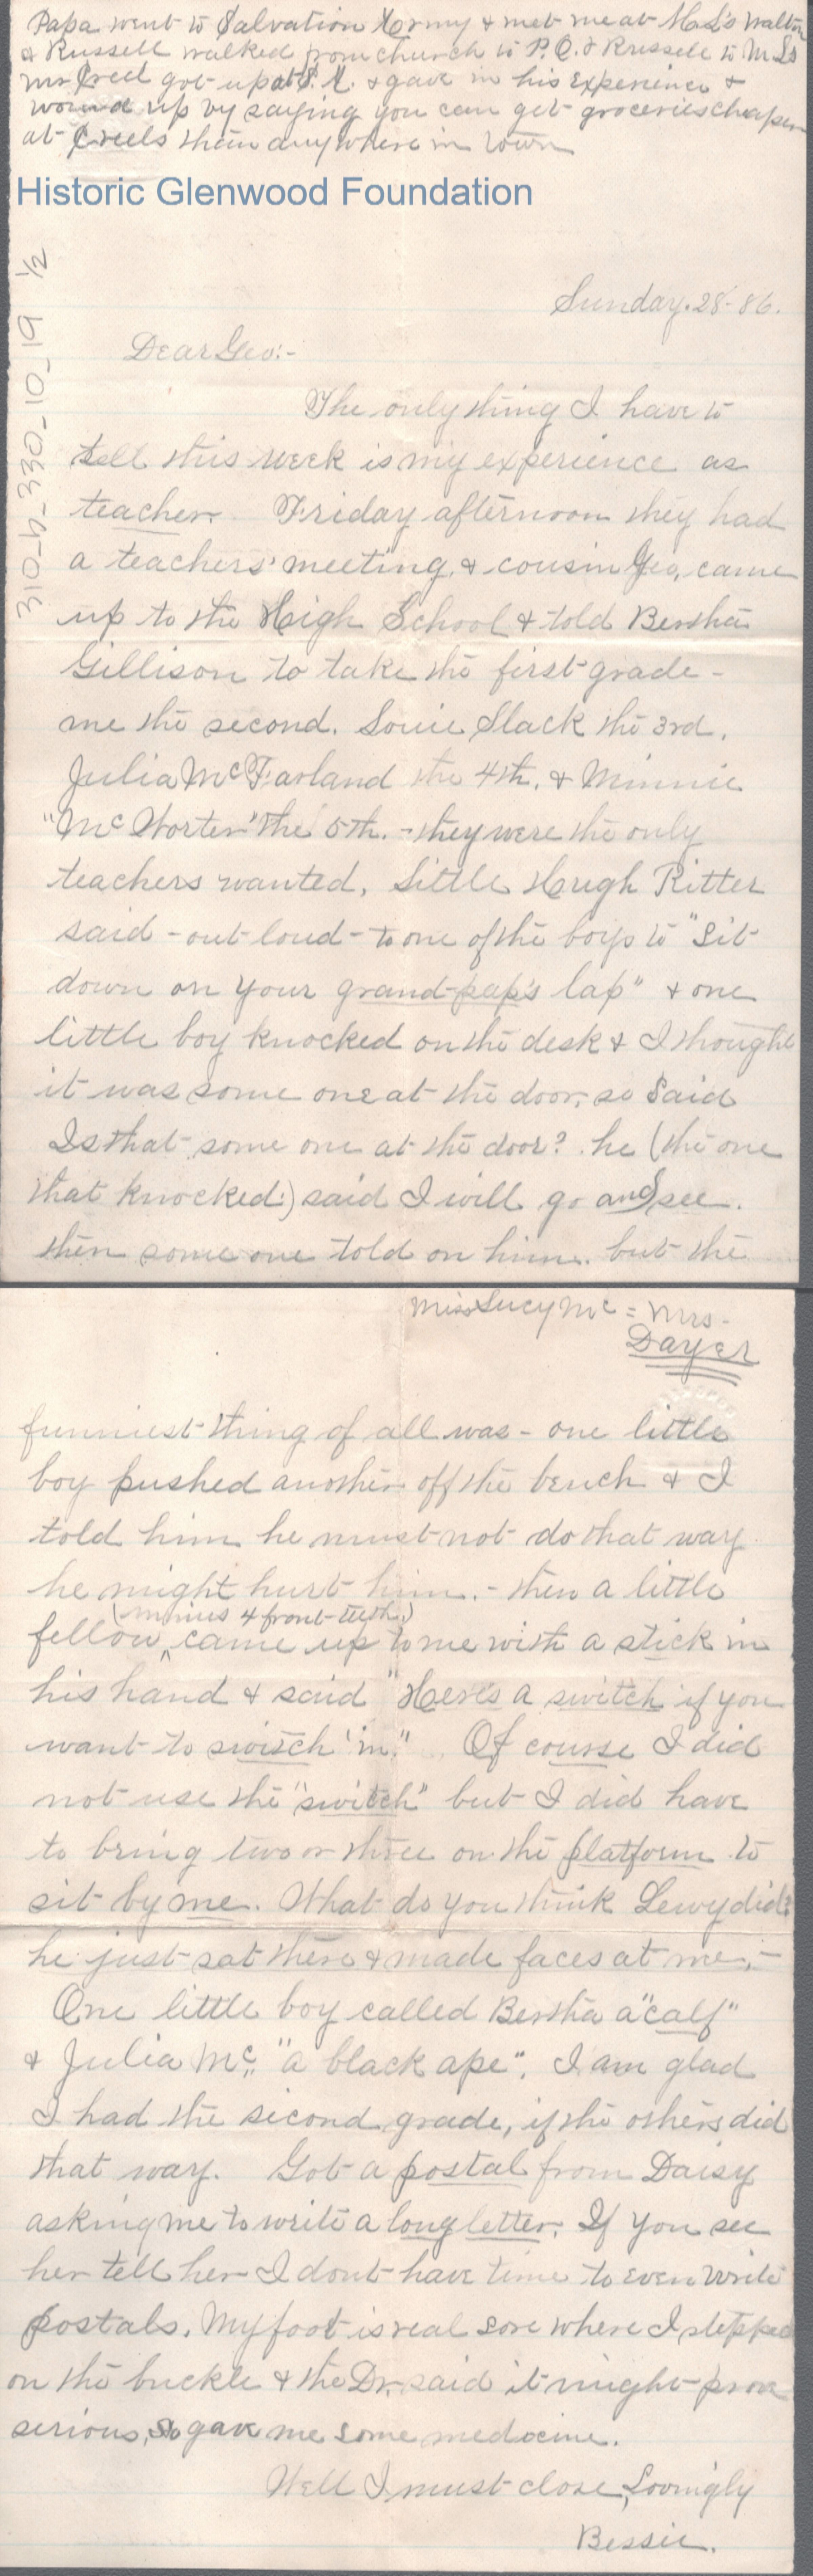 Papa went to Salvation Army & met me at M L's Walton
& Russell walked from church to P.O. & Russell to M L's
Mr Creel got up at S. A. & gave in his experience &
wound up by saying you can get groceries cheaper
at Creels than anywhere in town
Historic Glenwood Foundation
310_b_330_10_19 1/2
Sunday. 28-86.
Dear Geo:-
The only thing I have to
tell this week is my experience as
teacher. Friday afternoon they had
a teachers' meeting, & cousin Geo, came
up to the High School & told Bertha
Gillison to take the first grade -
me the second. Louie Slack the 3rd.
Julia McFarland the 4th. & Minnie
"McWorter" the 5th. - they were the only
teachers wanted. Little Hugh Ritter
said - out loud - to one of the boys to "Sit
down on your grand-pap's lap" & one
little boy knocked on the desk & I thought
it was some one at the door, so said
Is that some one at the door? he (the one
that knocked) said I will go and see.
then some one told on him. but the
Miss Lucy Mc = Mrs-
Dayer
funniest thing of all was - one little
boy pushed another off the bench & I
told him he must not do that way
he might hurt him. - then a little
(minus 4 front teeth.)
fellow ^ came up to me with a stick in
his hand & said "Here's a switch if you
want to switch 'im." Of course I did
not use the "switch" but I did have
to bring two or three on the platform to
sit by me. What do you think Lewy did?
he just sat there & made faces at me. -
One little boy called Bertha a "calf"
& Julia Mc. "a black ape". I am glad
I had the second grade, if the others did
that way. Got a postal from Daisy
asking me to write a long letter. If you see
her tell her I dont have time to even write
postals. My foot is real sore where I stepped
on the buckle & the Dr. said it might prove
serious, so gave me some medicine.
Well I must close, Lovingly
Bessie.